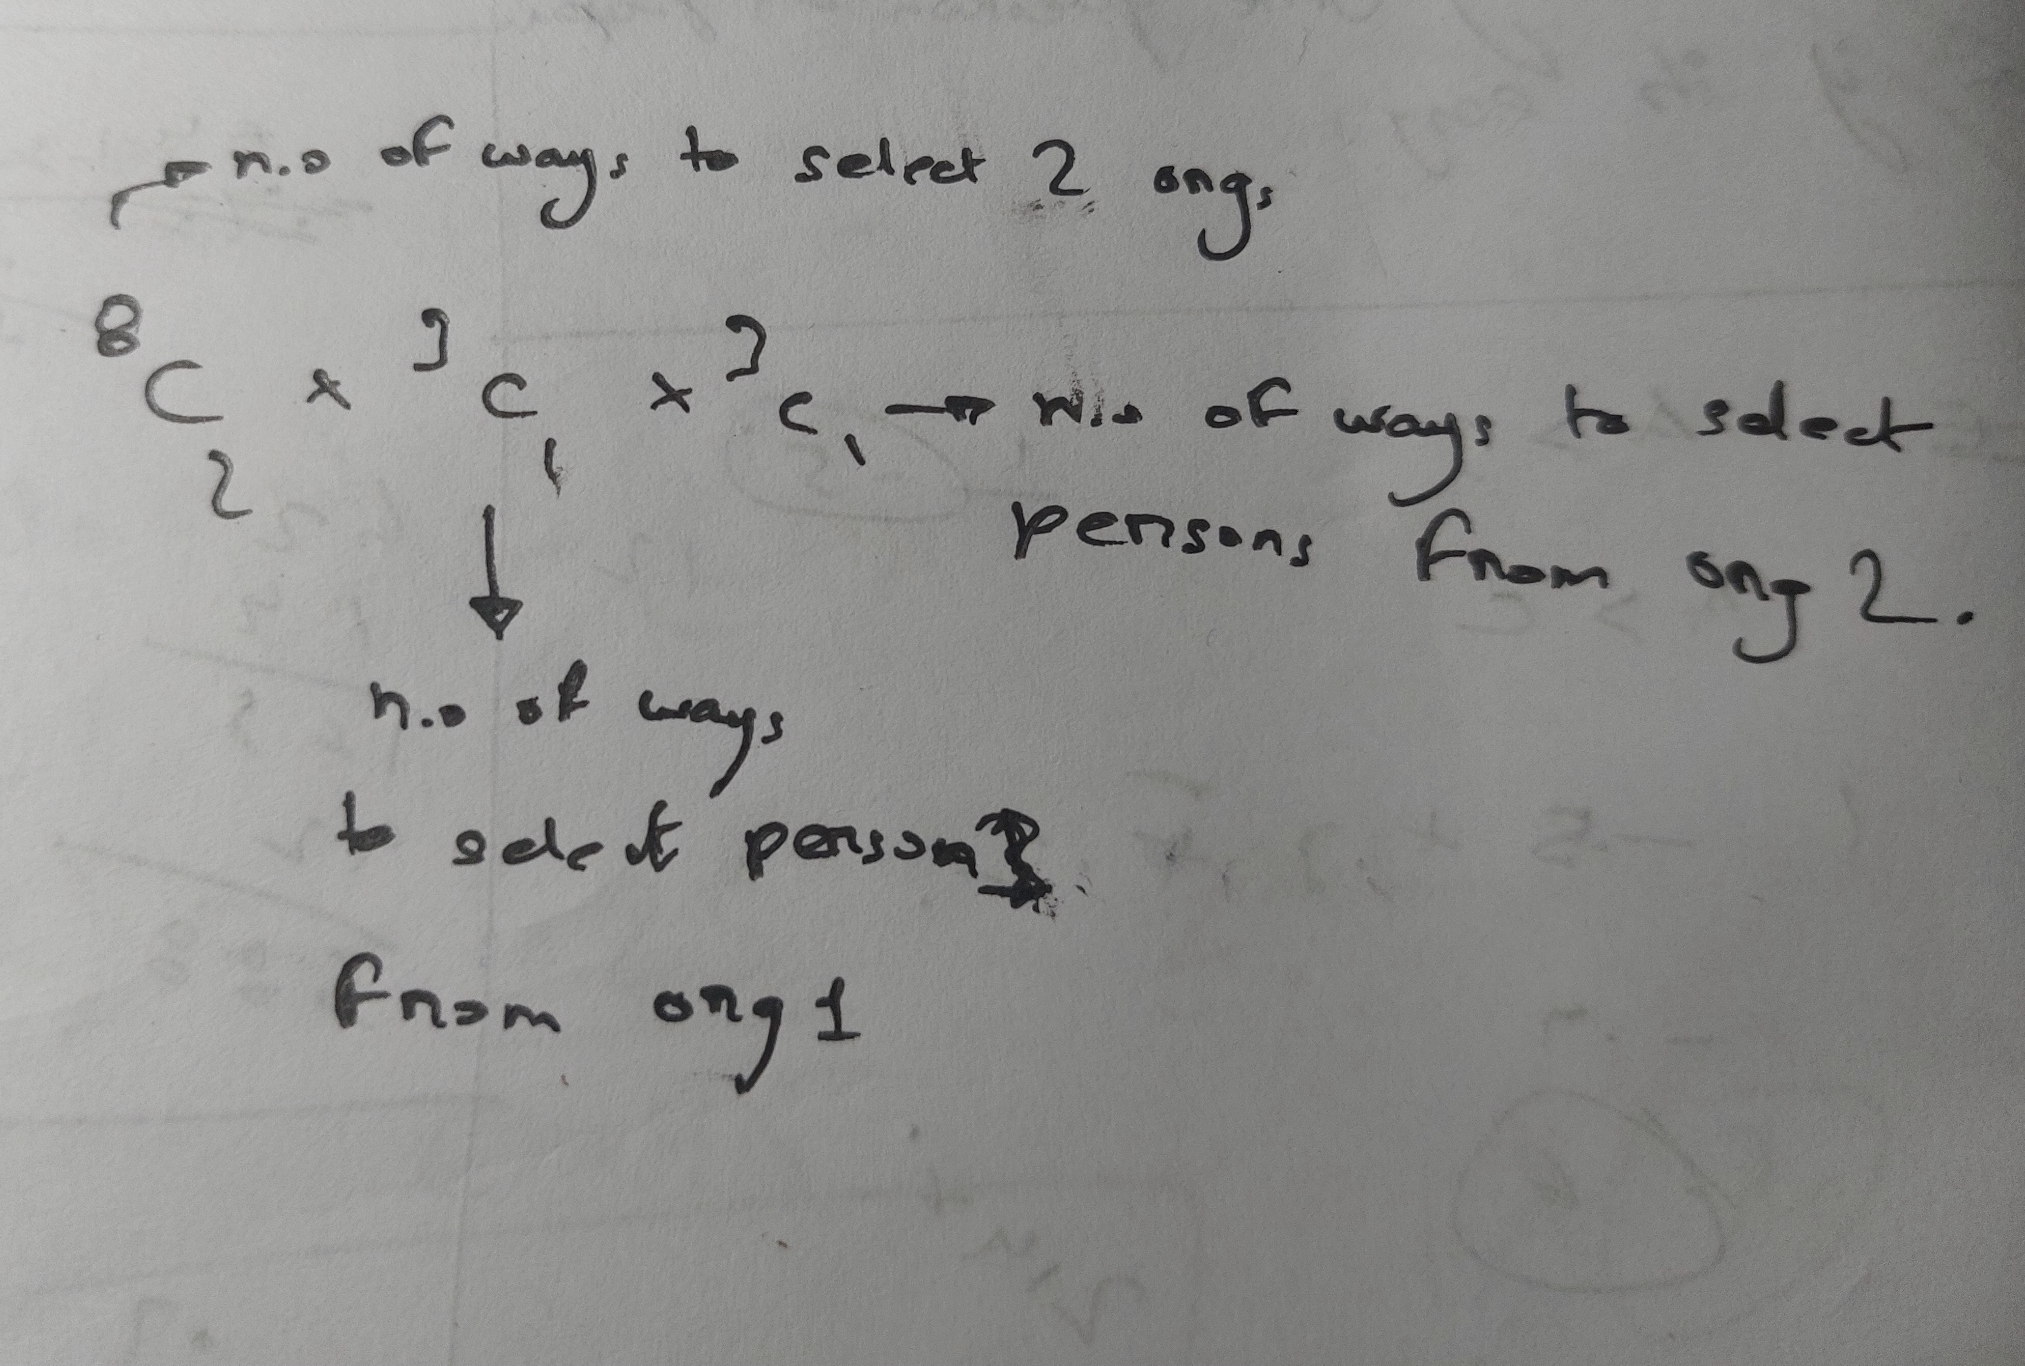 n.o of ways to select 2 orgs
⁸C₂ × ³C₁ × ³C₁ → N.o of ways to select
persons from org 2.
n.o of ways
to select person
from org 1